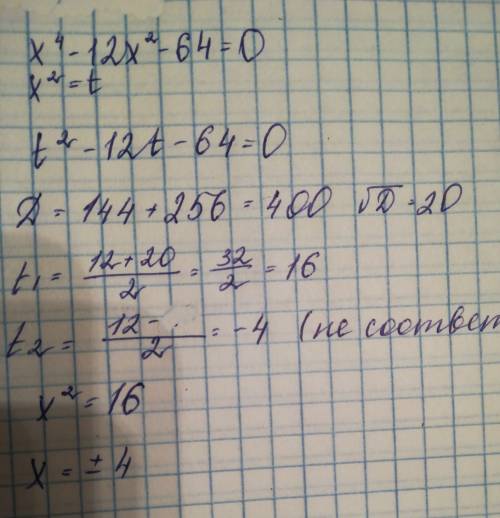 x⁴ - 12x² - 64 = 0
x² = t
t² - 12t - 64 = 0
Д = 144 + 256 = 400 √Д = 20
t₁ = (12 + 20)/2 = 32/2 = 16
t₂ = (12 - )/2 = -4 (не соответ
x² = 16
x = ± 4